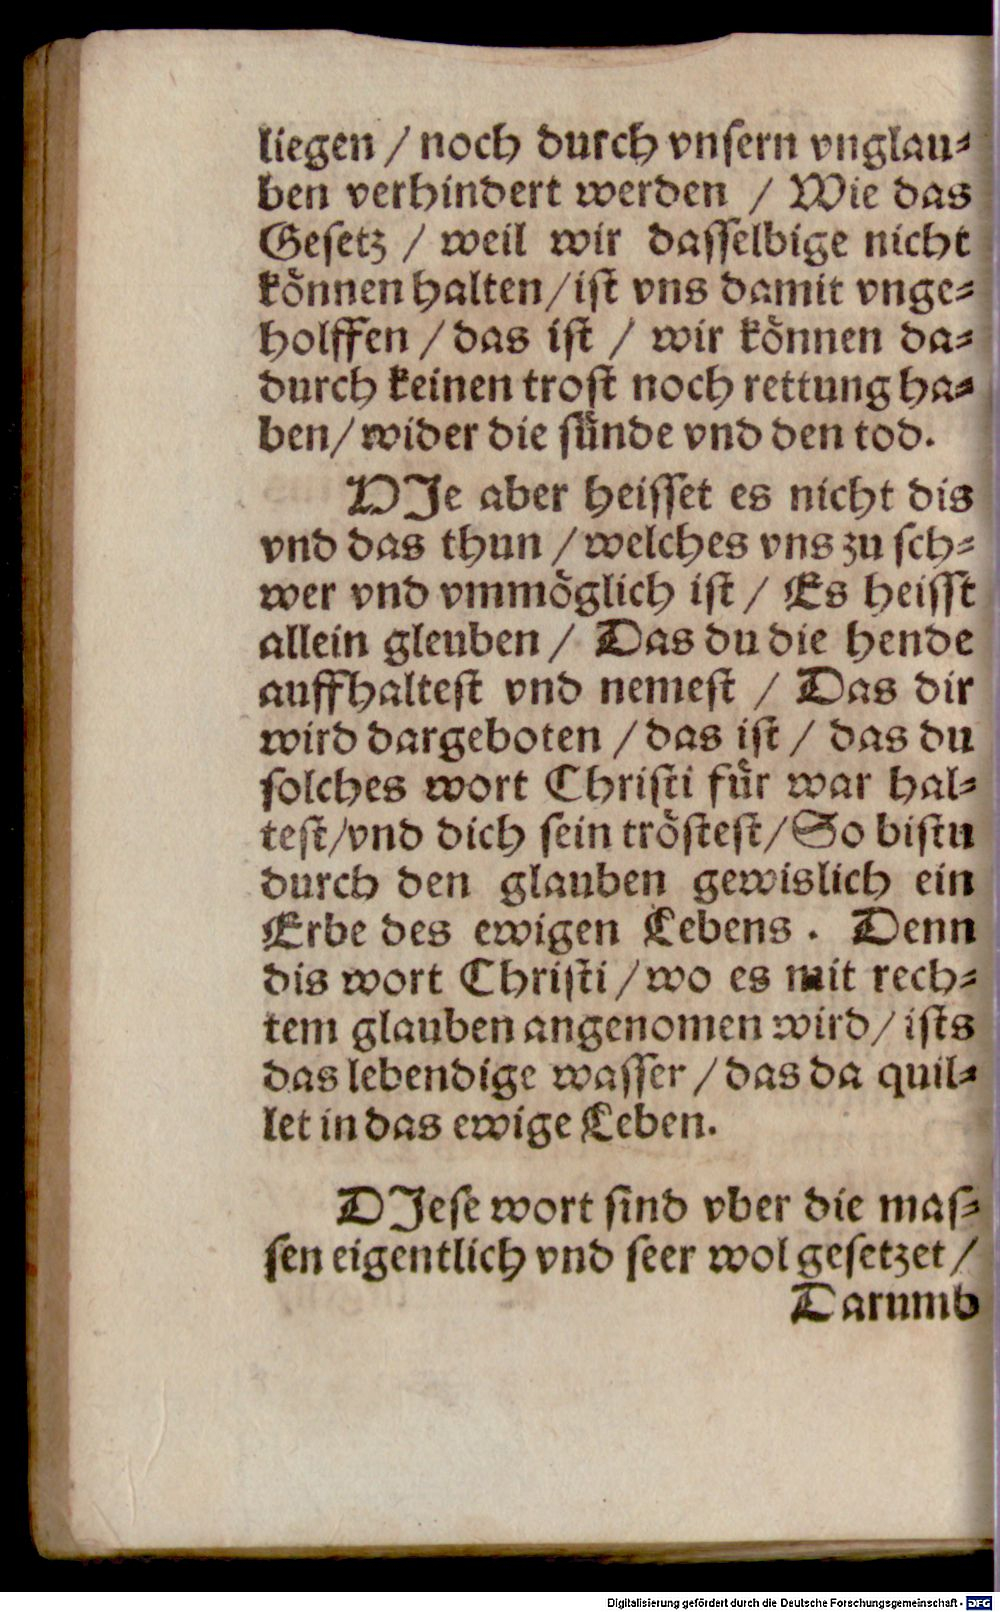 liegen / noch durch vnsern vnglau⸗
ben verhindert werden / Wie das
Gesetz / weil wir dasselbige nicht
koͤnnen halten / ist vns damit vnge⸗
holffen / das ist / wir koͤnnen da⸗
durch keinen trost noch rettung ha⸗
ben / wider die suͤnde vnd den tod.
HJe aber heisset es nicht dis
vnd das thun / welches vns zu sch⸗
wer vnd vmmoͤglich ist / Es heisst
allein gleuben / Das du die hende
auffhaltest vnd nemest / Das dir
wird dargeboten / das ist / das du
solches wort Christi fuͤr war hal⸗
test / vnd dich sein troͤstest / So bistu
durch den glauben gewislich ein
Erbe des ewigen Lebens. Denn
dis wort Christi / wo es mit rech⸗
tem glauben angenomen wird / ists
das lebendige wasser / das da quil⸗
let in das ewige Leben.
DJese wort sind vber die mas⸗
sen eigentlich vnd seer wol gesetzet /
Darumb
Digitalisierung gefördert durch die Deutsche Forschungsgemeinschaft - DFG